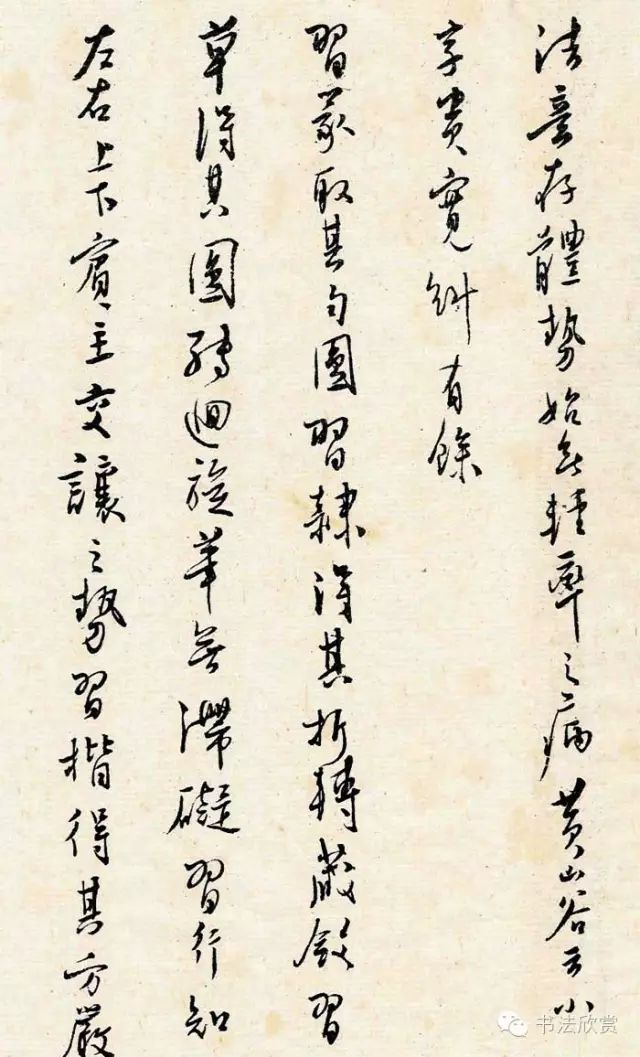 法意存體勢始無輕率之病黄山谷云小
字貴寬綽有餘
習篆取其勻圓習隸得其折轉蔵斂習
草得其圓轉迴旋筆無滯礙習行知
左右上下賓主交讓之勢習楷得其方嚴
书法欣赏